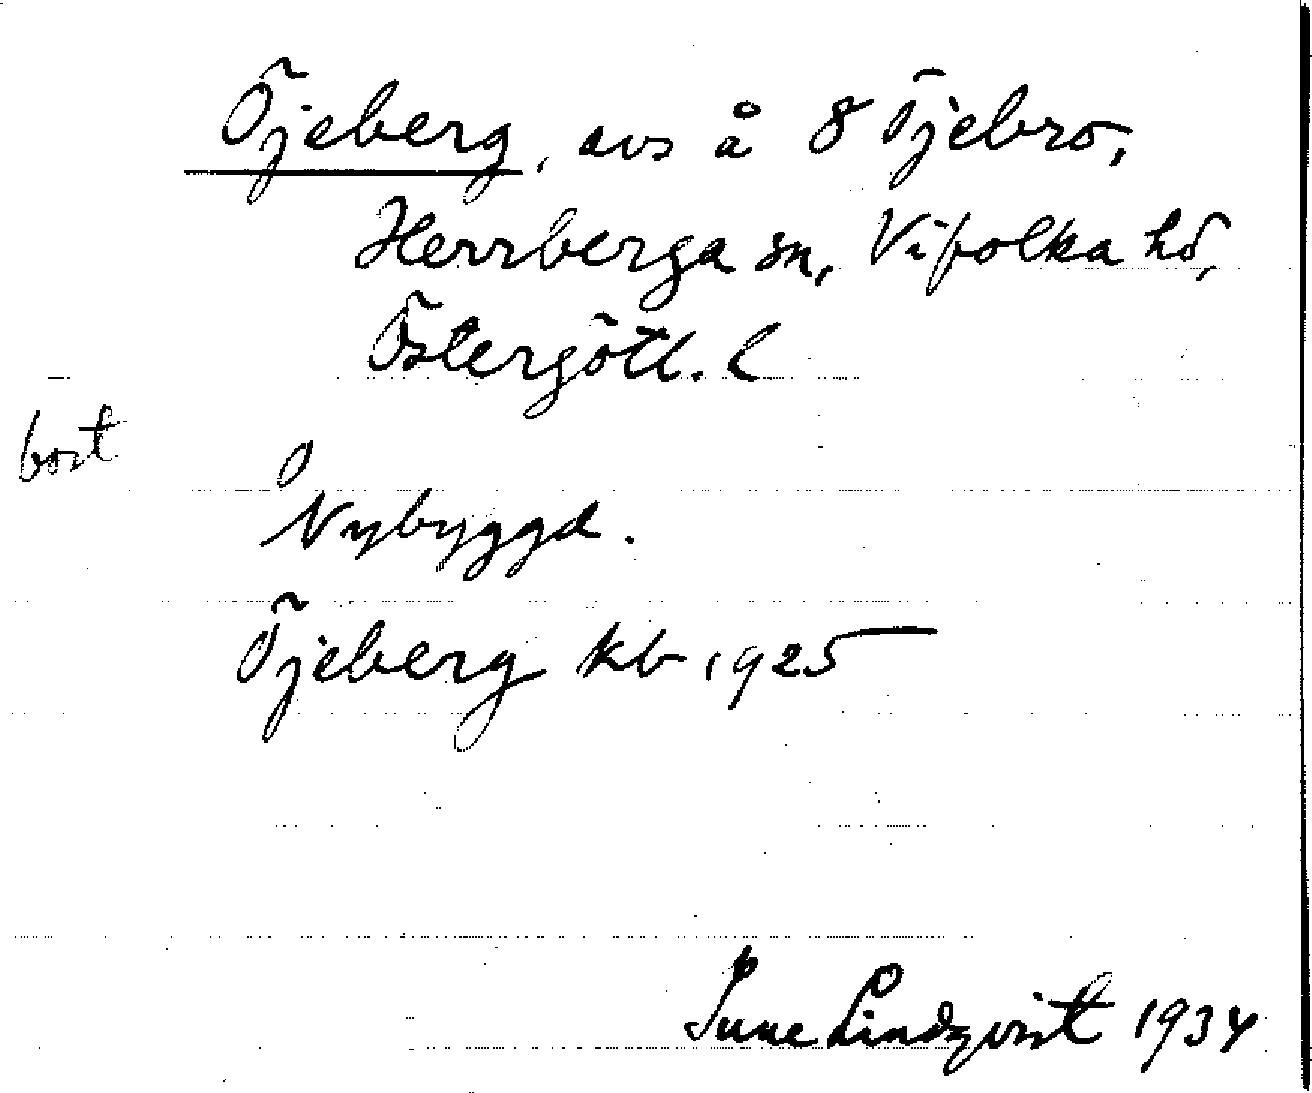 Öjeberg, avs å 8 Öjebro,
Herrberga sn, Vifolka hd,
Östergötl. l
bort
O
Nybyggd.
Öjeberg kb 1925
Sune Lindqvist 1934